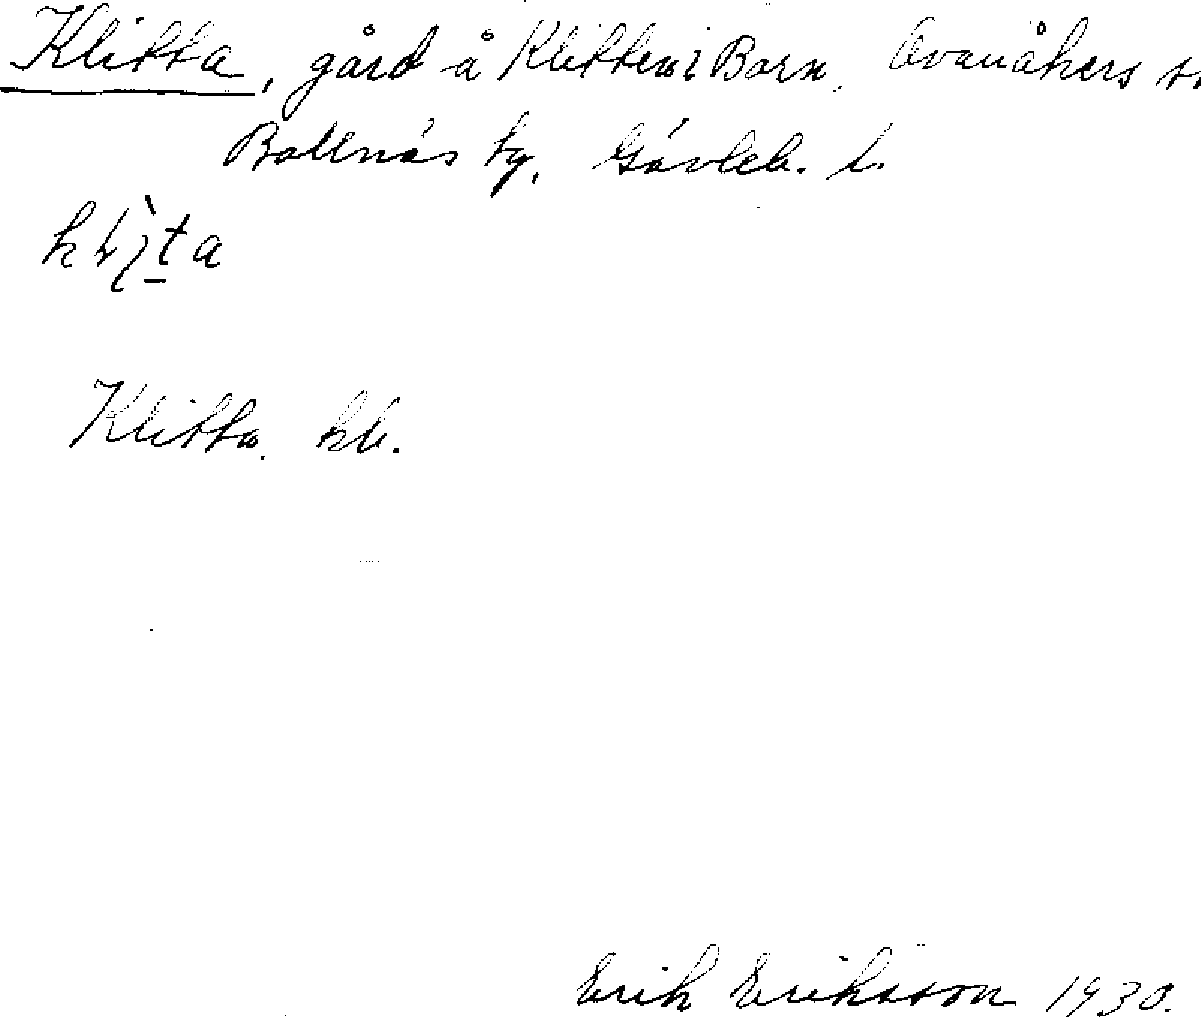 Klitta, gård å Klitten i Born. Ovanåkers s.
Bollnäs tg, Gävleb. l.
Klitta. kb.
Erik Eriksson 1930.